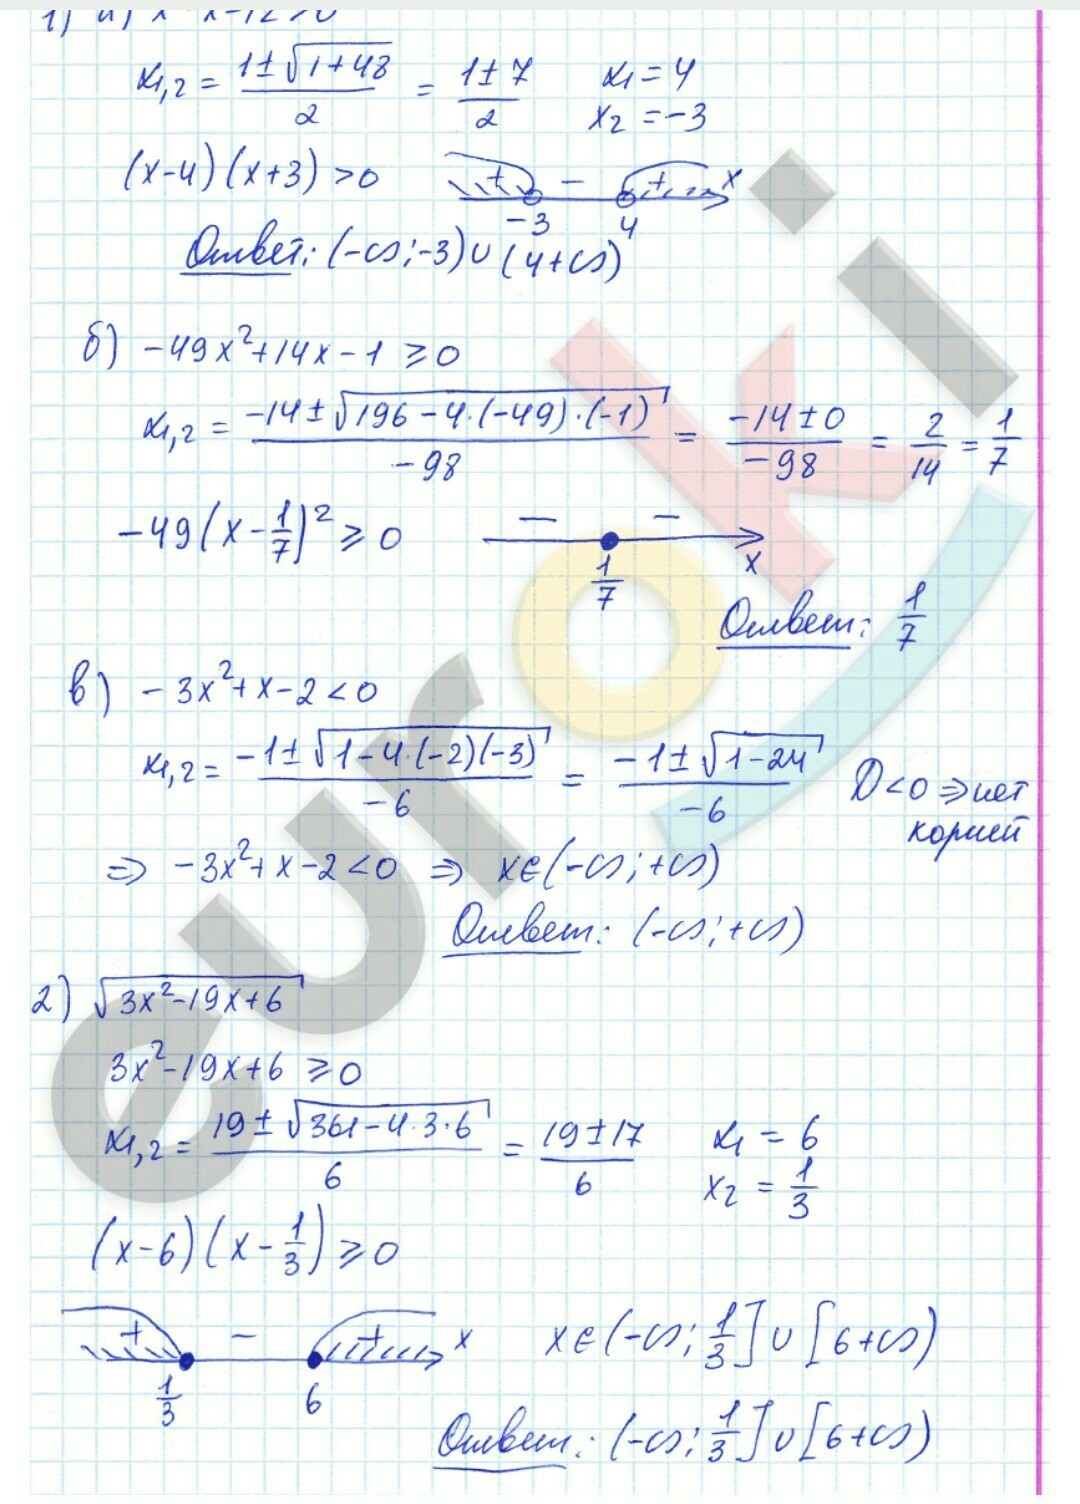 1) а) x² - x - 12 > 0
x₁,₂ = (1 ± √(1+48))/2 = (1 ± 7)/2   x₁ = 4
x₂ = -3
(x-4)(x+3) > 0   + - + x
-3 4
Ответ: (-∞; -3) ∪ (4 +∞)
б) -49x² + 14x - 1 ≥ 0
x₁,₂ = (-14 ± √(196 - 4·(-49)·(-1)))/(-98) = (-14 ± 0)/(-98) = 2/14 = 1/7
-49(x - 1/7)² ≥ 0   - - x
1/7
Ответ: 1/7
в) -3x² + x - 2 < 0
x₁,₂ = (-1 ± √(1 - 4·(-2)(-3)))/(-6) = (-1 ± √(1-24))/(-6)   D < 0 ⇒ нет
корней
⇒ -3x² + x - 2 < 0 ⇒ x ∈ (-∞; +∞)
Ответ: (-∞; +∞)
2) √(3x² - 19x + 6)
3x² - 19x + 6 ≥ 0
x₁,₂ = (19 ± √(361 - 4·3·6))/6 = (19 ± 17)/6   x₁ = 6
x₂ = 1/3
(x-6)(x - 1/3) ≥ 0
+ - + x   x ∈ (-∞; 1/3] ∪ [6 +∞)
1/3 6
Ответ: (-∞; 1/3] ∪ [6 +∞)
euroki